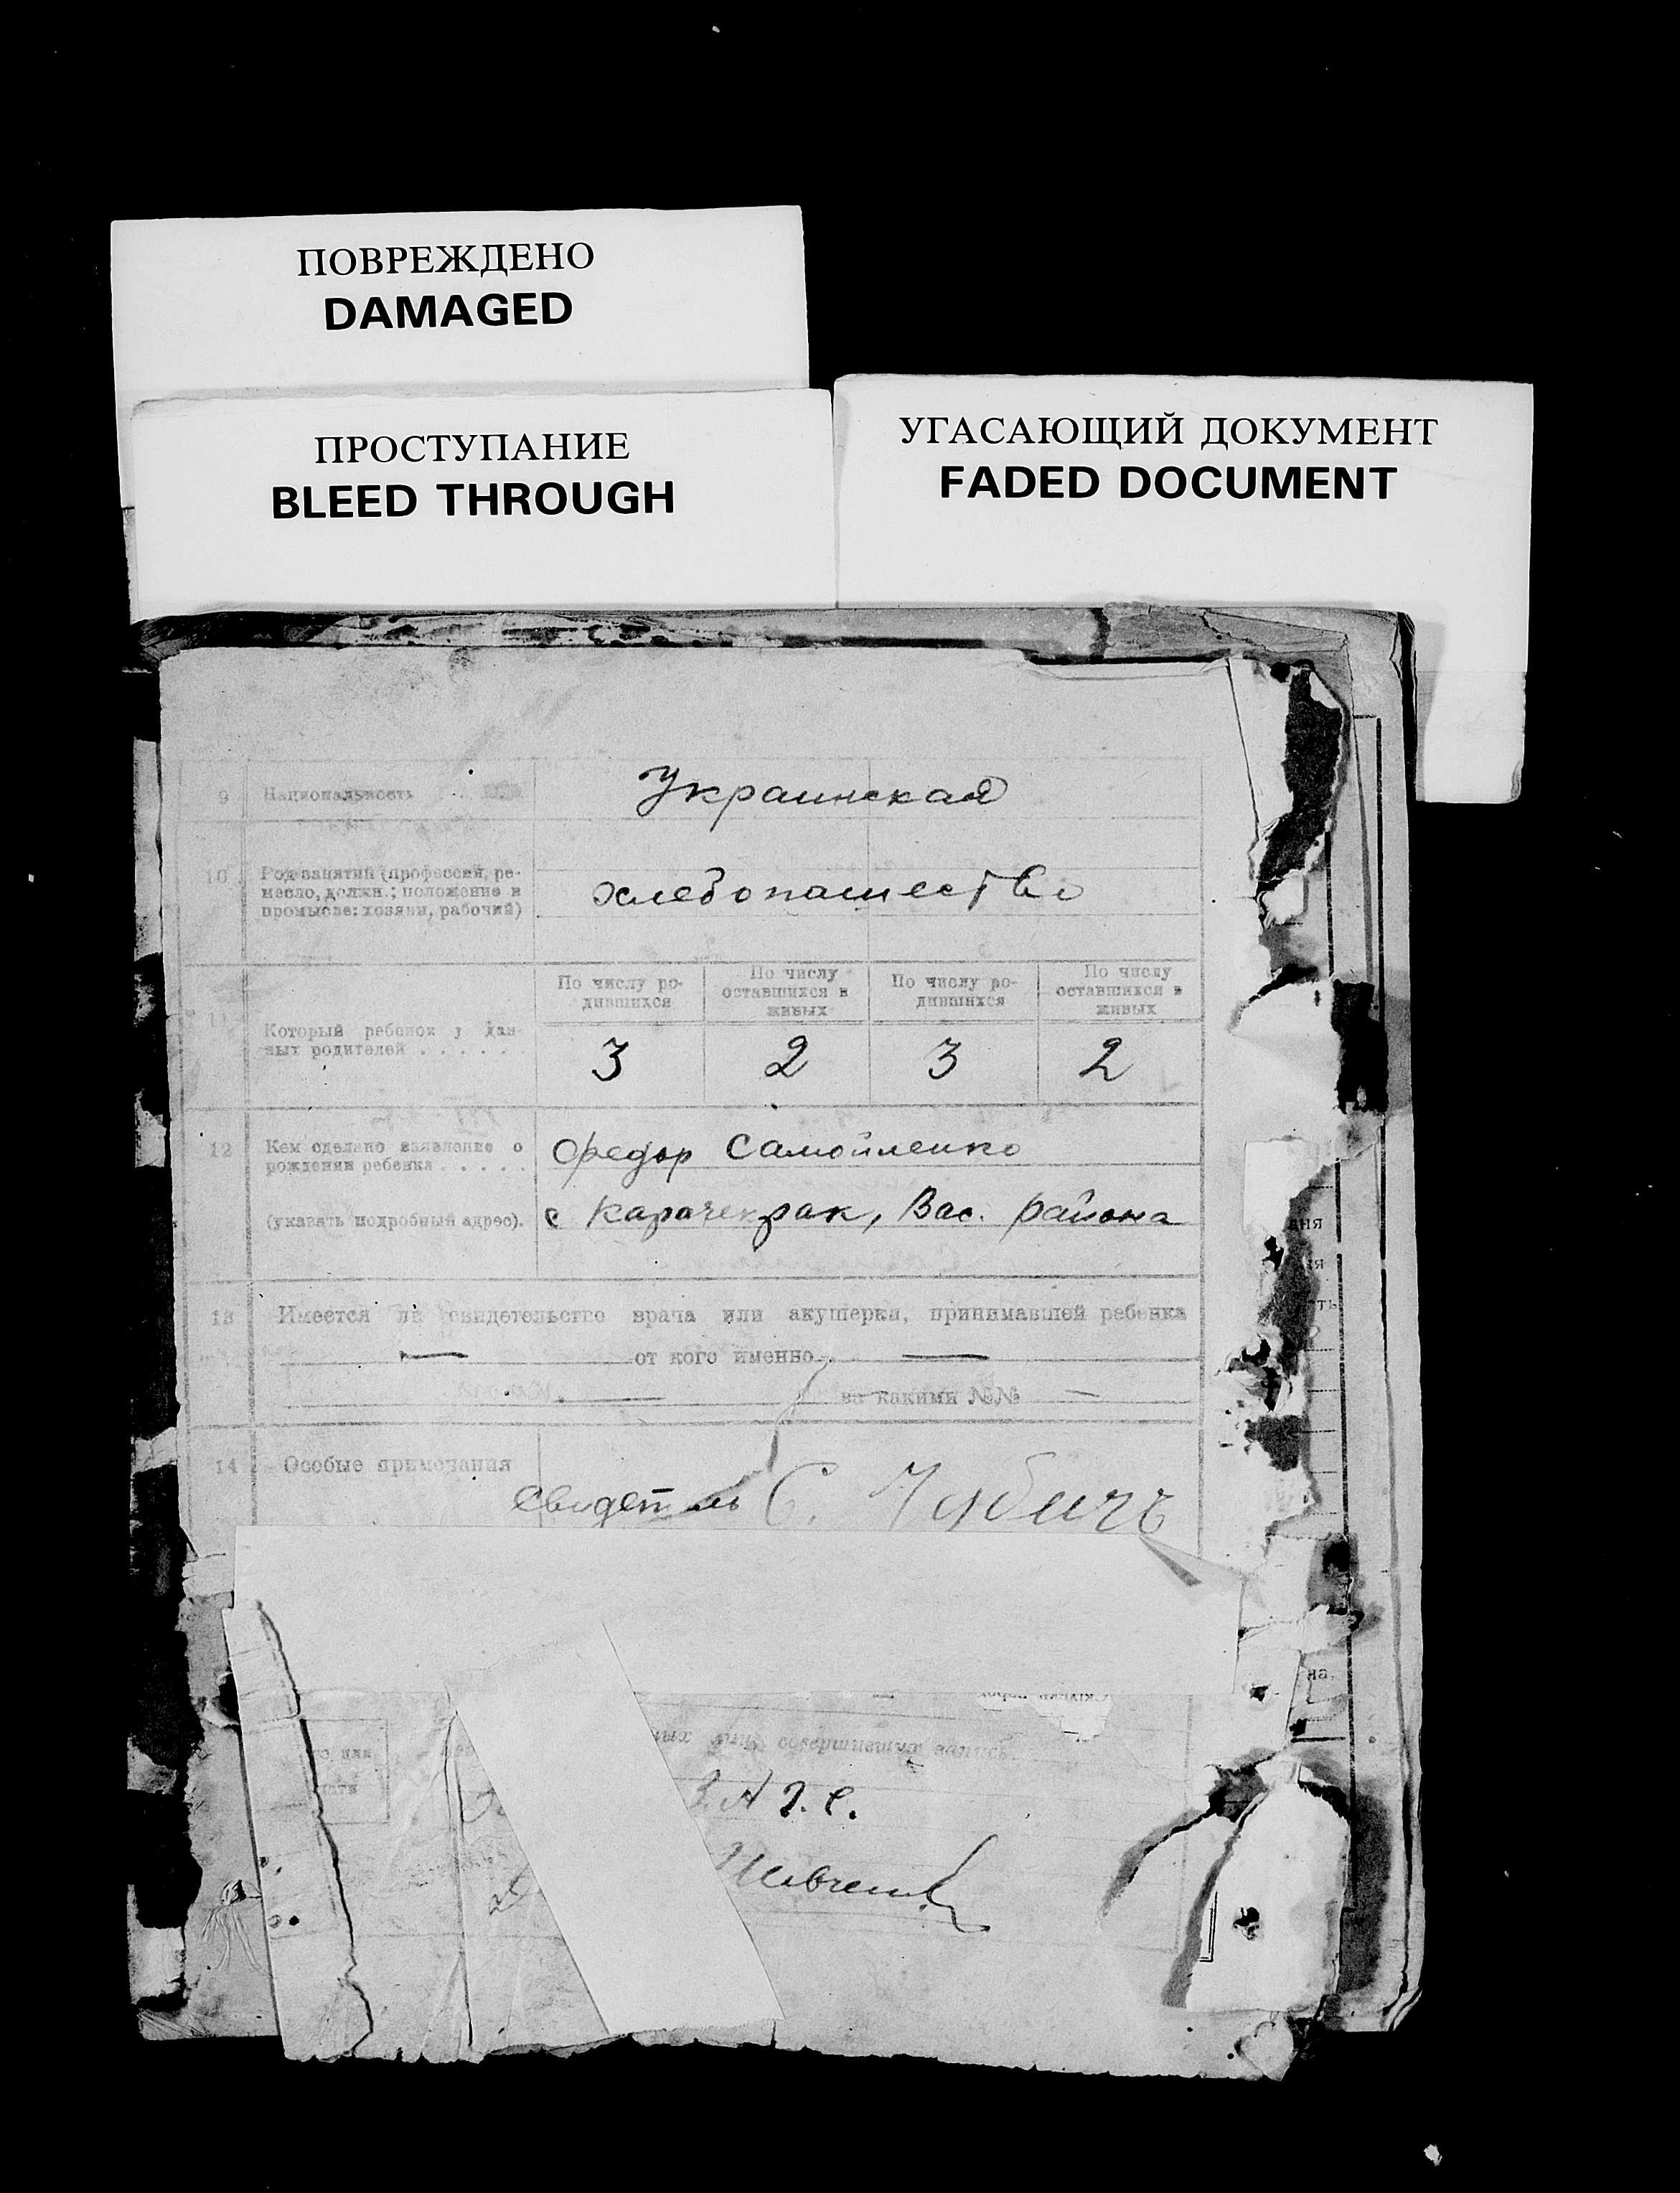 ПОВРЕЖДЕНО
DAMAGED
ПРОСТУПАНИЕ
BLEED THROUGH
УГАСАЮЩИЙ ДОКУМЕНТ
FADED DOCUMENT
9 Национальность Украинская
10 Род занятий (профессия, ре-
месло, должн.; положение в
промысле: хозяин, рабочий)
хлебопашество
По числу ро-
дившихся
По числу
оставшихся в
живых
По числу ро-
дившихся
По числу
оставшихся в
живых
11 Который ребенок у дан-
ных родителей . . . . . .
3 2 3 2
12 Кем сделано заявление о
рождении ребенка . . . . .
Федор Самойленко
(указать подробный адрес).
с Карачекрак, Вас. района
13 Имеется ли свидетельство врача или акушерки, принимавшей ребенка
— от кого именно —
— за какими №№ —
14 Особые примечания
свидетель С.
дня
ия
ть
на.
совершивших запись
З.А.Г.С.